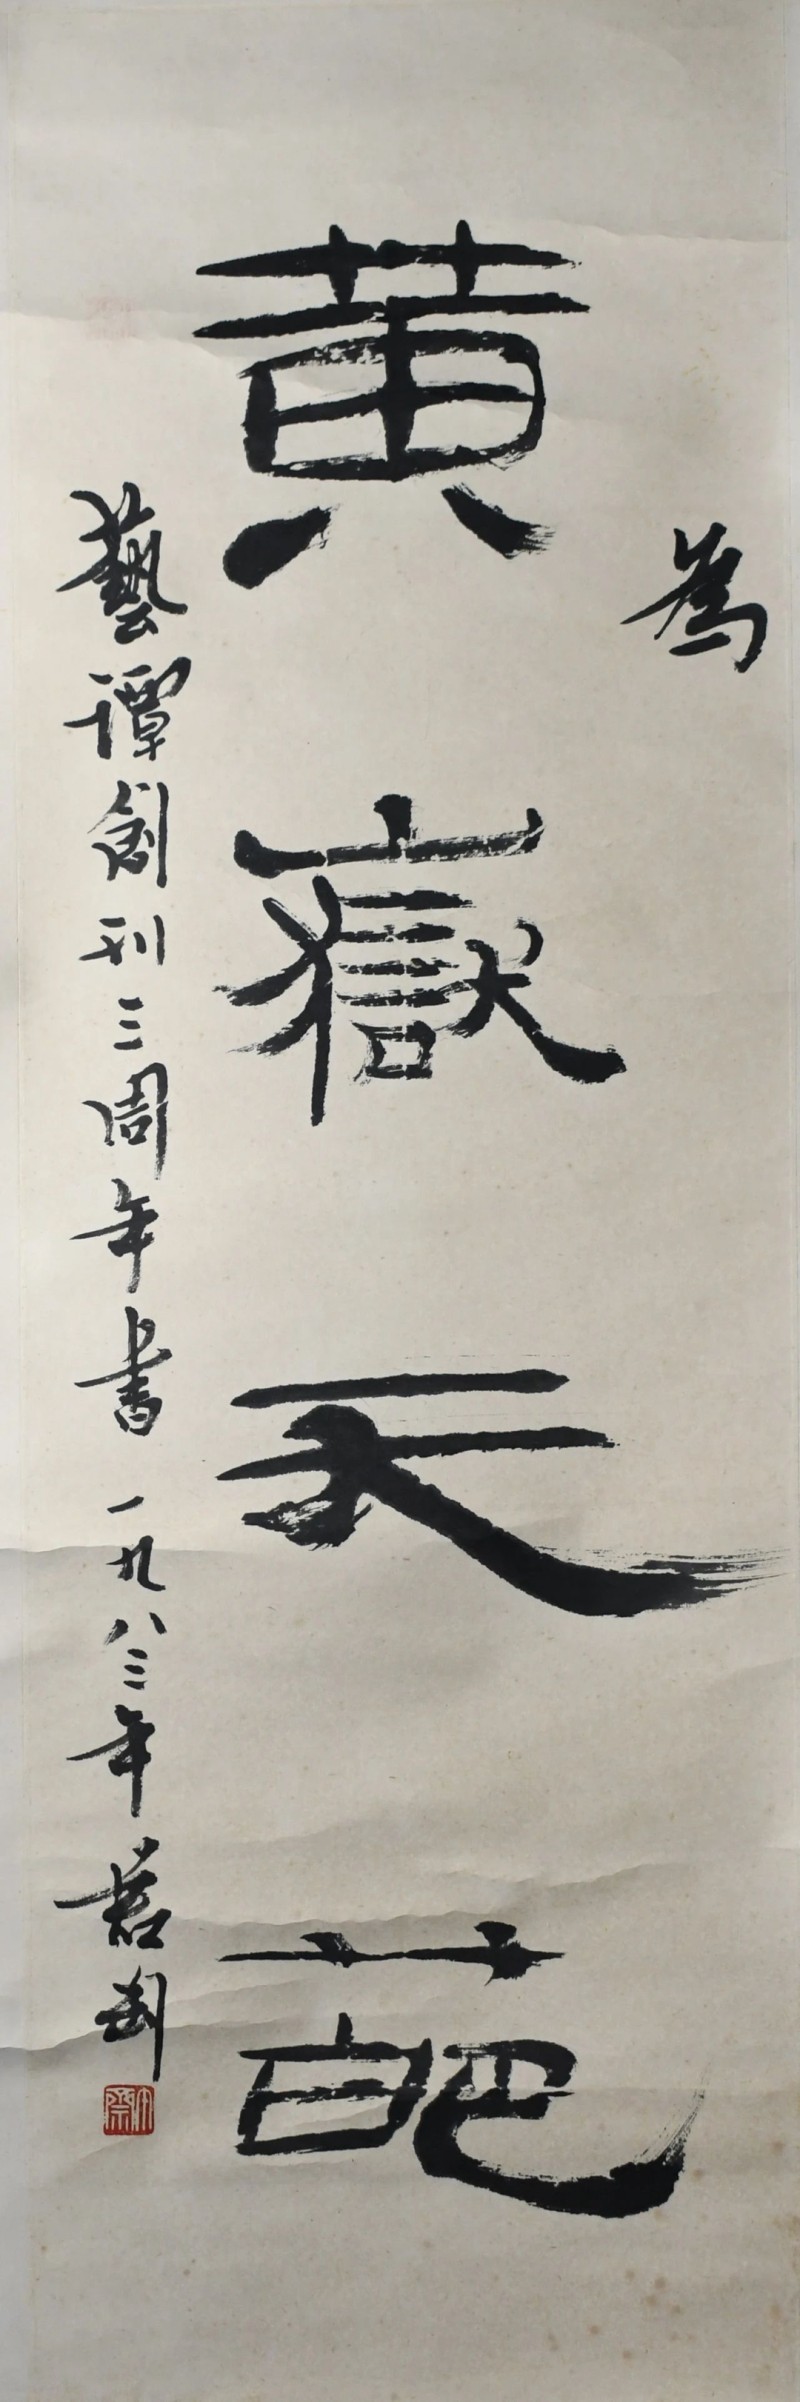 為
黄嶽天葩
藝譚創刊三周年書 一九八三年